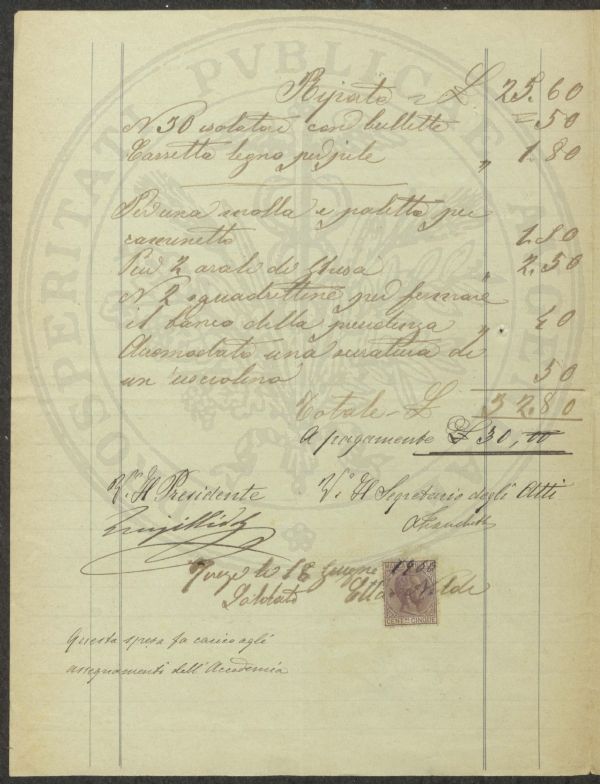 Riporto = L. 25.60
N 30 isolatori con bullette = 50
Cassetta legno per pile " 1.80
Per una molla e paletto per
1.80
Più 2 di " 2.50
N 2 squadrettine per fermare
il banco della presidenza " 40
Accomodato una serratura di
un usciolino 50
Totale = L 32.80
A pagamento L 30,00
V.° Il Presidente V.° Il Segretario degli Atti
li 18 Giugno 1900
Saldato
CENT. MI CINQUE
Questa spesa fa carico agli
assegnamenti dell'Accademia
PROSPERITATI PVBLICAE AVGENDAE